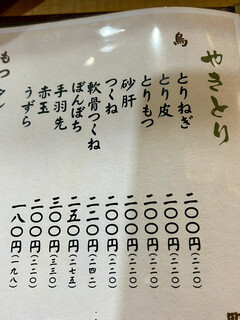 やきとり
鳥
とりねぎ 二〇〇円(二二〇)
とり皮 二〇〇円(二二〇)
とりもつ 二〇〇円(二二〇)
砂肝 二〇〇円(二二〇)
つくね 二〇〇円(二二〇)
軟骨つくね 二二〇円(二四二)
ぼんぼち 二五〇円(二七五)
手羽先 三〇〇円(三三〇)
赤玉 二〇〇円(二二〇)
うずら 一八〇円(一九八)
もつ